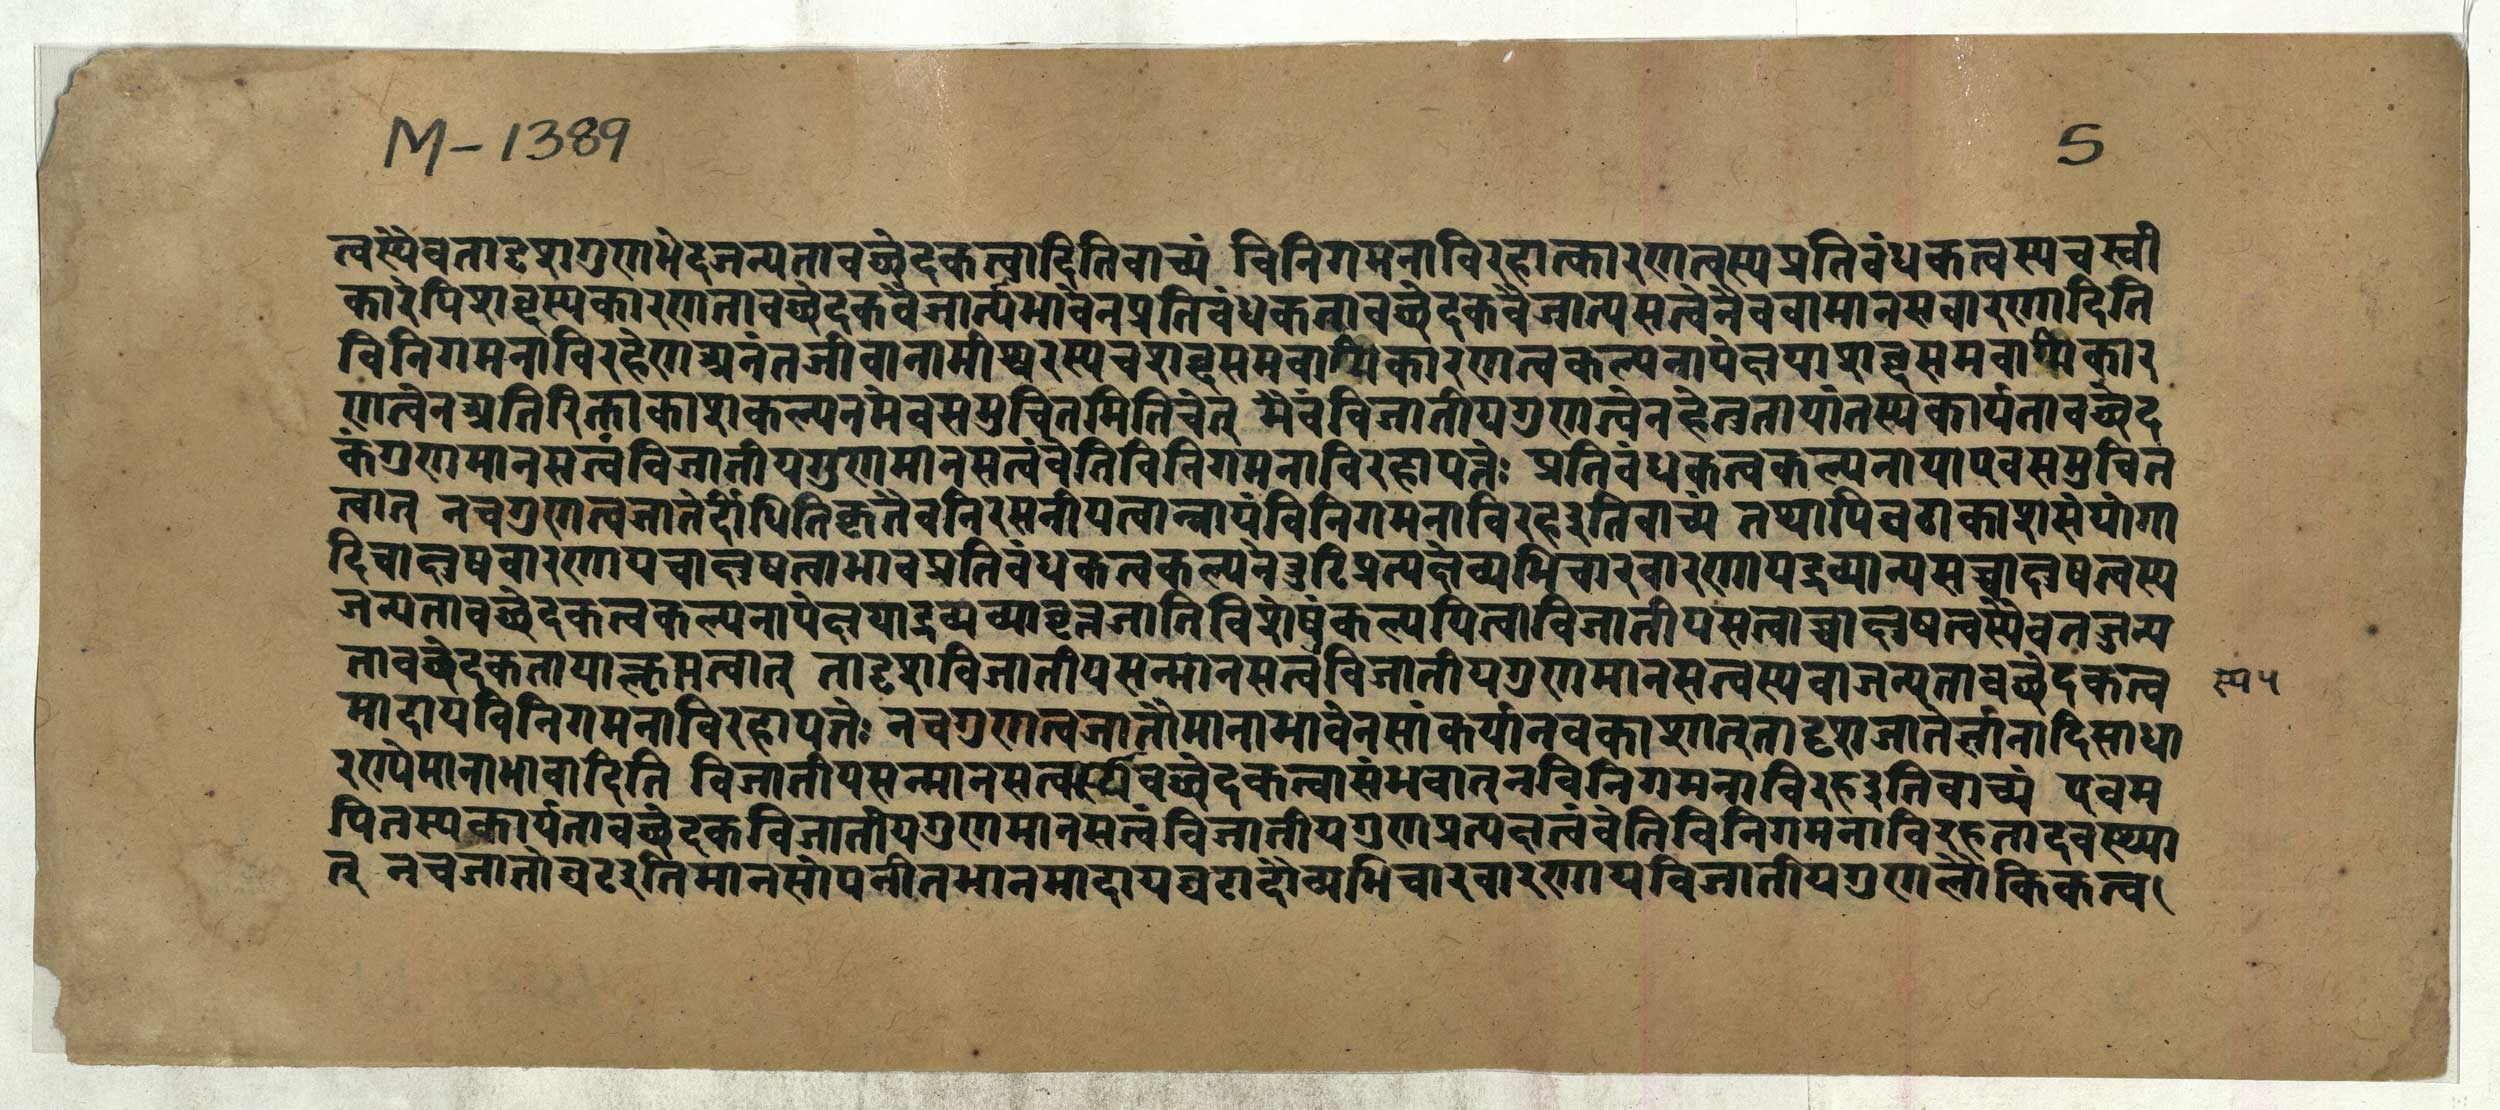 M-1389
5
त्वस्यैवतादृशगुणभेदजन्यतावच्छेदकत्वादितिवाच्यं विनिगमनाविरहात्कारणत्वस्यप्रतिवंधकत्वस्यचस्वी
कारेपिशब्दस्यकारणतावच्छेदकवैजात्यभावेनप्रतिवंधकतावच्छेदकवैजात्यसत्वेनैववामानसवारणादिति
विनिगमनाविरहेणाद्यनंतजीवानामीश्वरस्यचशब्दसमवायिकारणत्वकल्पनापेक्षयाशब्दसमवायिकार
णत्वेनद्यतिरिक्ताकाशकल्पनमेवसमुचितमितिचेत् मैवंविजातीयगुणत्वेनहेतुतायांतस्यकार्यतावच्छेद
कंगुणमानसत्वंविजातीयगुणमानसत्वंवेतिविनिगमनाविरहापत्तेः प्रतिवंधकत्वकल्पनायाएवसमुचित
त्वात् नचगुणत्वजातेर्दीधितिकृतैवनिरसनीयत्वान्नायंविनिगमनाविरहइतिवाच्यं तथापिवटाकाशसंयोगा
दिचाक्षुषवारणायचाक्षुषत्वाभावप्रतिवंधकत्वकल्पनेत्रुटिप्रत्यक्षेव्यभिचारवारणायद्रव्यान्यसच्चाक्षुषत्वस्य
जन्यतावच्छेदकत्वकल्पनापेक्षयाद्रव्यव्यावृत्तजातिविशेषंकल्पयित्वाविजातीयसत्वाच्चाक्षुषत्वस्यैवतज्जन्य
तावच्छेदकतायाःकॢप्तत्वात् तादृशविजातीयसन्मानसत्वंविजातीयगुणमानसत्वस्यवाजन्यतावच्छेदकत्व
स्यप
मादायविनिगमनाविरहापत्तेः नचगुणत्वजातौमानाभावेनसांकर्यानवकाशात्तादृशजातेर्ज्ञानादिसाधा
रण्येमानाभावादिति विजातीयसन्मानसत्वस्यैवच्छेदकत्वासंभवात्नविनिगमनाविरहइतिवाच्यं एवम
पितस्यकार्यतावच्छेदकविजातीयगुणमानसत्वंविजातीयगुणप्रत्यक्षत्वंवेतिविनिगमनाविरहतादवस्थ्या
त् नचजातोघटइतिमानसोपनीतभानमादायघटादौव्यभिचारवारणायविजातीयगुणलौकिकत्व